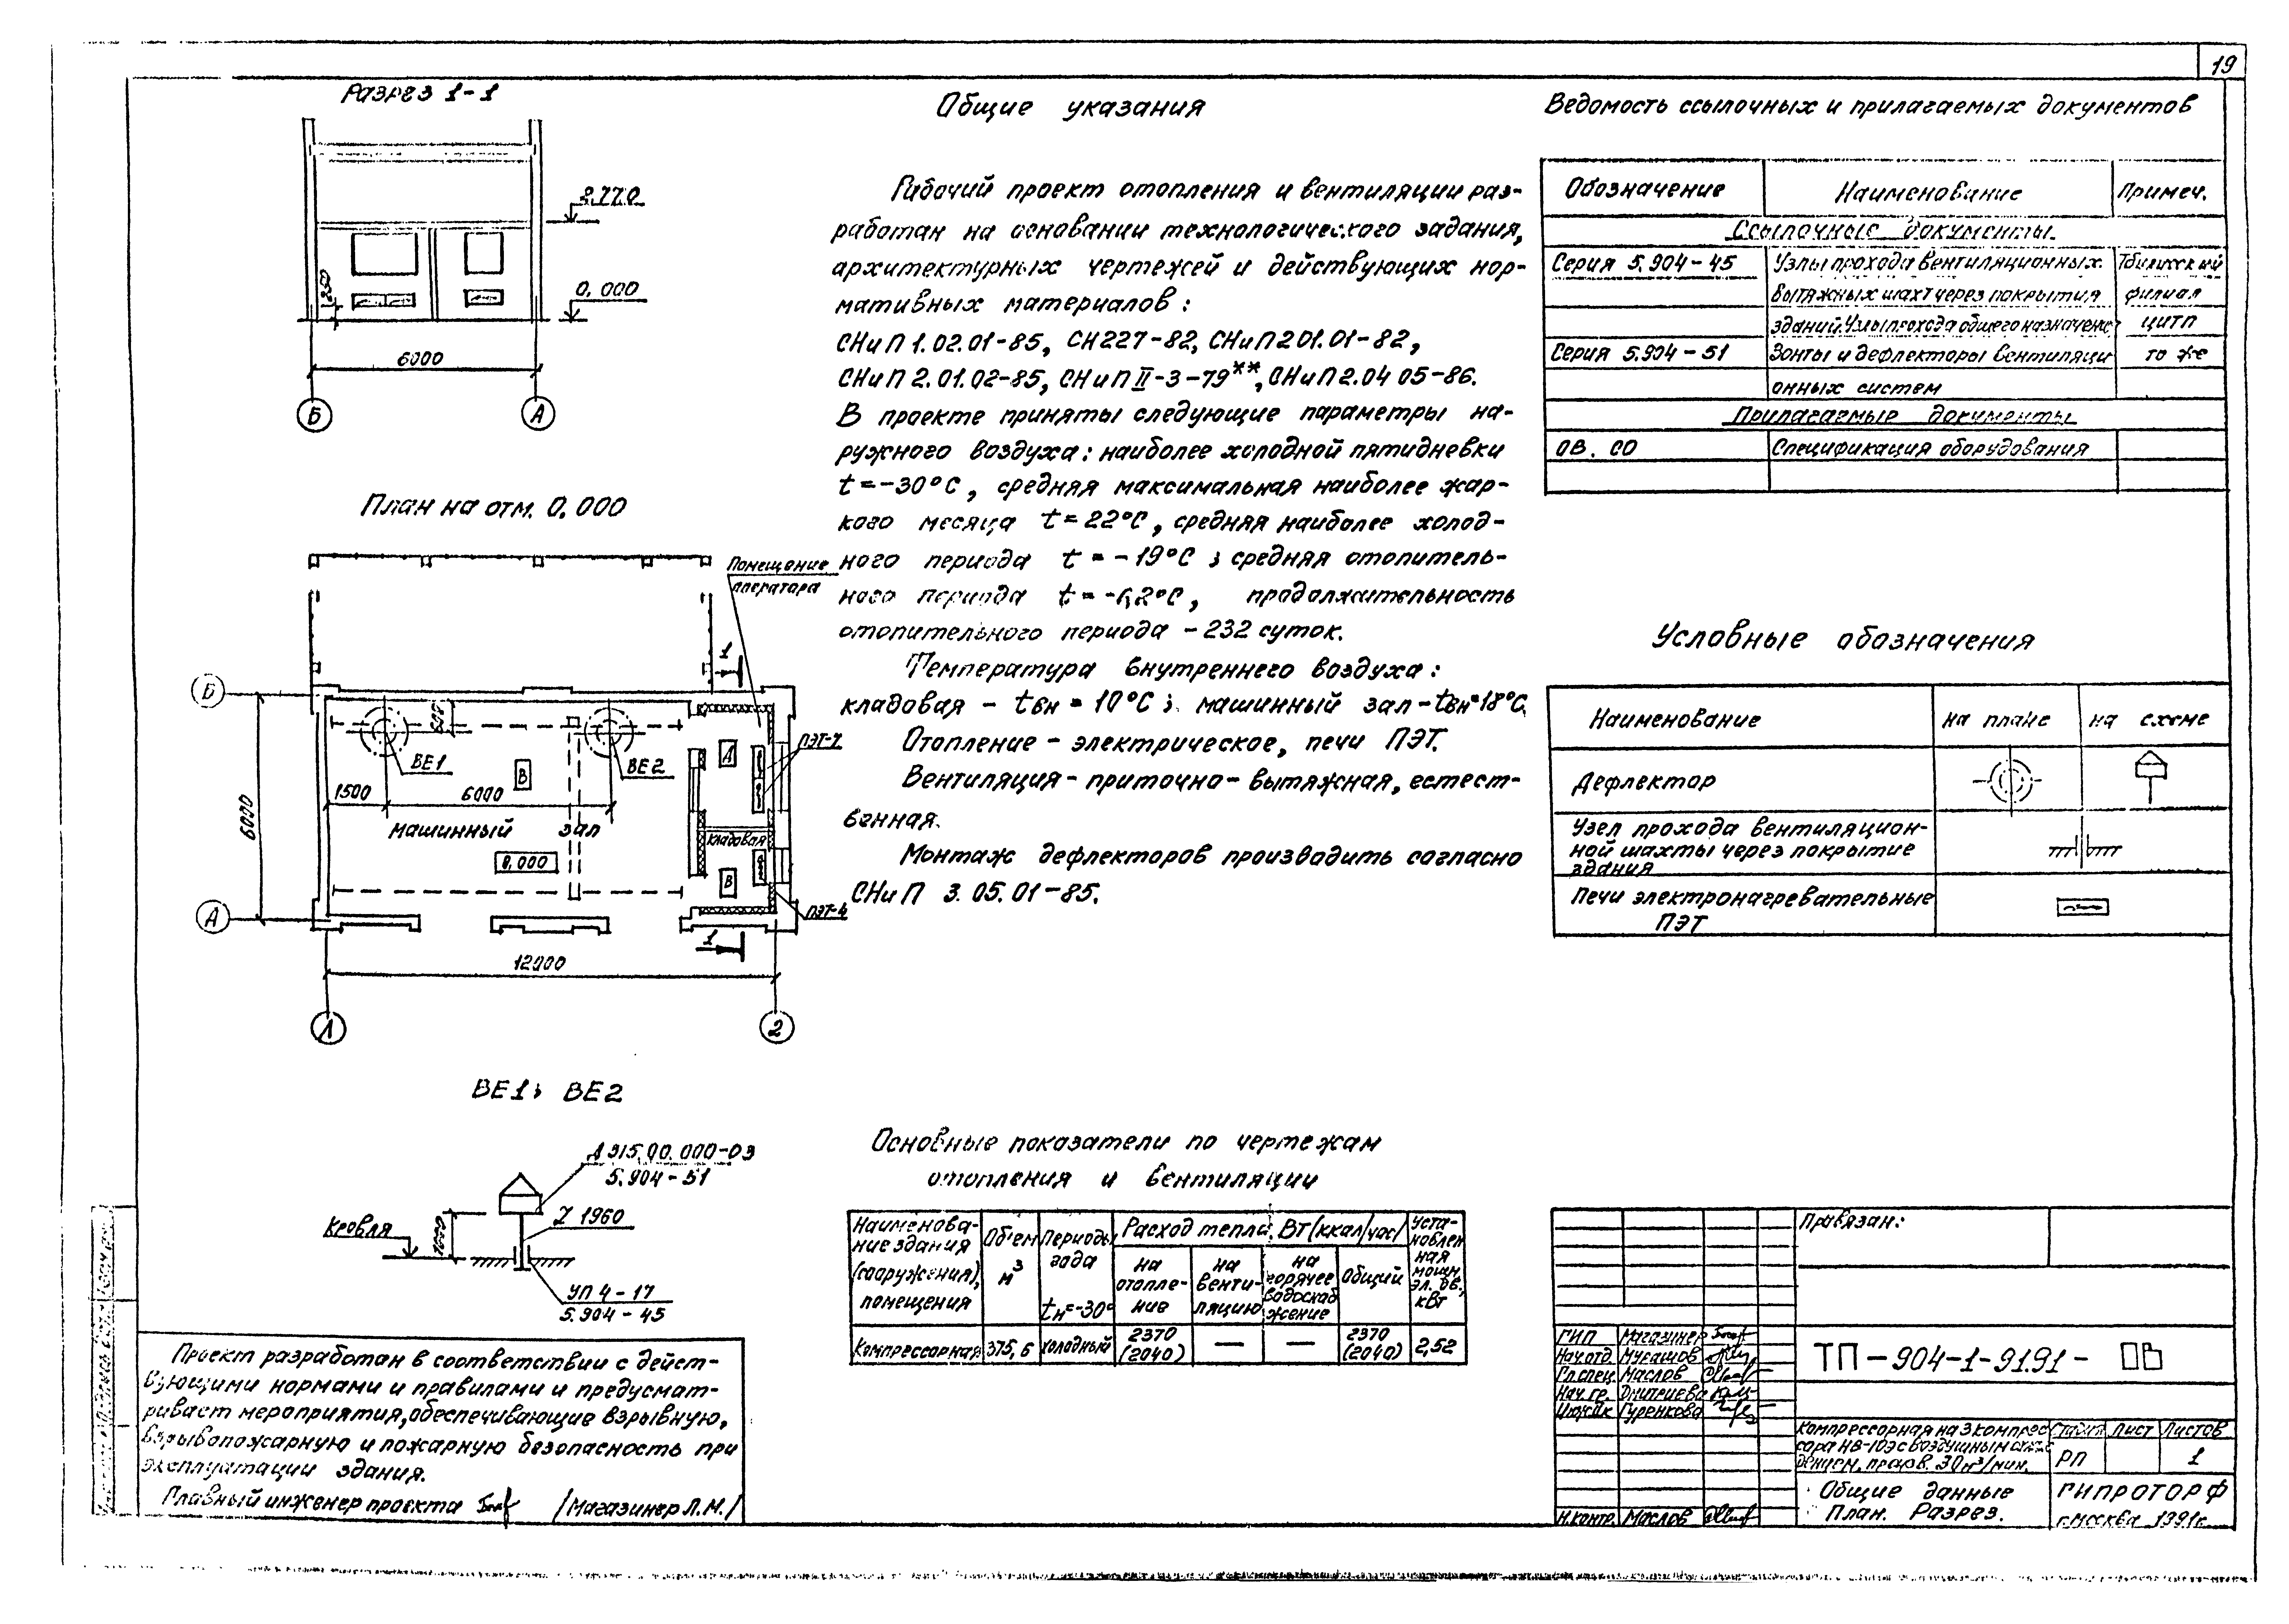 19
Разрез 1-1
2.770
0.000
250
6000
Б
А
План на отм. 0.000
Помещение
оператора
1
Б
600
ПЭТ-7
ВЕ1
В
ВЕ2
А
1500
6000
6000
машинный зал
кладовая
0,000
В
А
ПЭТ-4
1
12000
1
2
ВЕ1; ВЕ2
5.904-51
Кровля
1000
∑ 1960
УП 4-17
5.904-45
Проект разработан в соответствии с дейст-
вующими нормами и правилами и предусмат-
ривает мероприятия, обеспечивающие взрывную,
взрывопожарную и пожарную безопасность при
эксплуатации здания.
Главный инженер проекта /Магазинер Л.М./
Общие указания
Рабочий проект отопления и вентиляции раз-
работан на основании технологического задания,
архитектурных чертежей и действующих нор-
мативных материалов:
СНиП 1.02.01-85, СН227-82, СНиП201.01-82,
СНиП 2.01.02-85, СНиП II-3-79**, СНиП2.04 05-86.
В проекте приняты следующие параметры на-
ружного воздуха: наиболее холодной пятидневки
t=-30°С, средняя максимальная наиболее жар-
кого месяца t=22°С, средняя наиболее холод-
ного периода t=-19°С; средняя отопитель-
ного периода продолжительность
отопительного периода - 232 суток.
Температура внутреннего воздуха:
кладовая - tвн = 10°С; машинный зал - tвн=18°С.
Отопление - электрическое, печи ПЭТ.
Вентиляция - приточно-вытяжная, естест-
венная.
Монтаж дефлекторов производить согласно
СНиП 3.05.01-85.
Основные показатели по чертежам
отопления и вентиляции
Наименова-
ние здания
(сооружения),
помещения
Объем
м3
Периоды
года
tн=-30°
Расход тепла, Вт (ккал/час)
на
отопле-
ние
на
венти-
ляцию
на
горячее
водоснаб
жение
Общий
Уста-
новлен
ная
мощн.
эл. дв.,
кВт
Компрессорная 375,6 холодный 2370 (2040) — — 2370 (2040) 2,52
Ведомость ссылочных и прилагаемых документов
Обозначение Наименование Примеч.
Ссылочные документы
Серия 5.904-45 Узлы прохода вентиляционных Тбилисский
вытяжных шахт через покрытия филиал
зданий. Узлы прохода общего назначения ЦИТП
Серия 5.904-51 Зонты и дефлекторы вентиляци то же
онных систем
Прилагаемые документы
ОВ. СО Спецификация оборудования
Условные обозначения
Наименование на плане на схеме
Дефлектор
Узел прохода вентиляцион-
ной шахты через покрытие
здания
Печи электронагревательные
ПЭТ
Привязан:
ГИП Магазинер
Нач.отд. Мурашов
Гл.спец. Маслов
Нач.гр. Дмитриева
Гуренкова
Н.контр. Маслов
ТП-904-1-91.91- ОВ
Компрессорная на 3 компрес
сора НВ-10Э с воздушным охлаж
дением, произв. 30 м³/мин.
Стадия Лист Листов
РП 1
Общие данные
План. Разрез.
ГИПРОТОРФ
г.Москва 1991г.